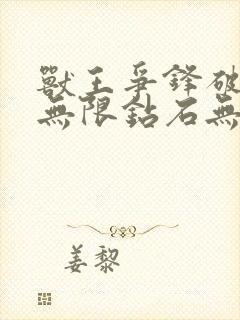 獸王爭鋒破
無限鈷石無
姜黎